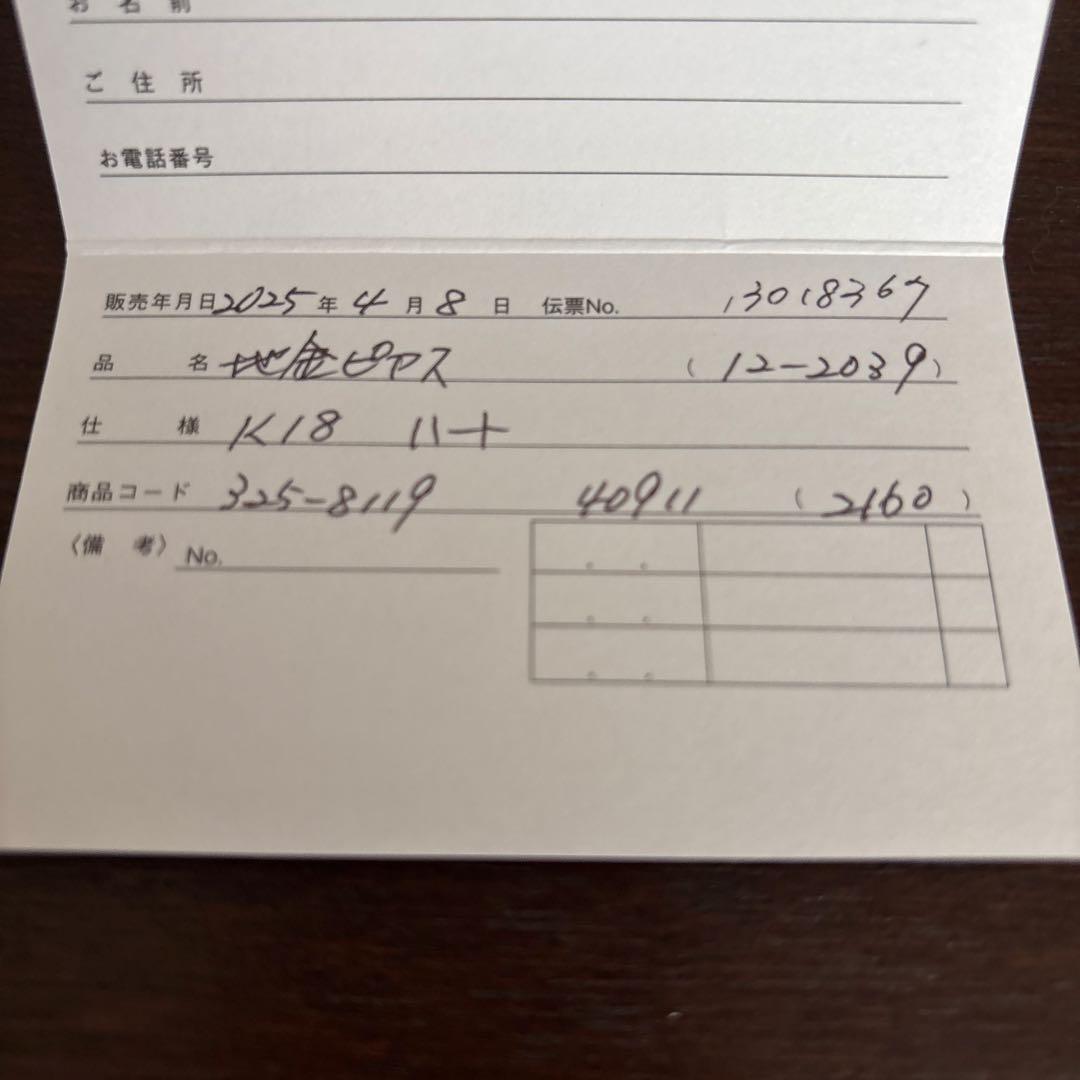 お名前
ご住所
お電話番号
販売年月日 2025年 4月 8日 伝票No. 13018367
品名 地金ピアス (12-2039)
仕様 K18 ハート
商品コード 325-8119 40911 (2160)
〈備考〉 No.